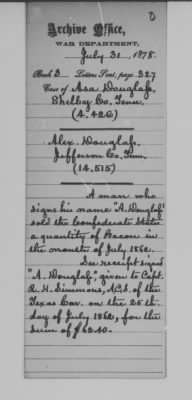 D
Archive Office,
WAR DEPARTMENT.
July 31, 1878.
Book B Letters Sent, page 327
Case of Asa Douglass.
Shelby Co. Tenn.
(4.426)
Alex. Douglass.
Jefferson Co. Tenn.
(14.515)
A man who
signs his name "A. Douglass"
sold the Confederate States
a quantity of Bacon in
the month of July 1862.
See receipt signed
"A. Douglass", given to Capt.
R. H. Simmons, A.Q.S. of the
Texas Cav. on the 25th
day of July 1862, for the
sum of $62.40.